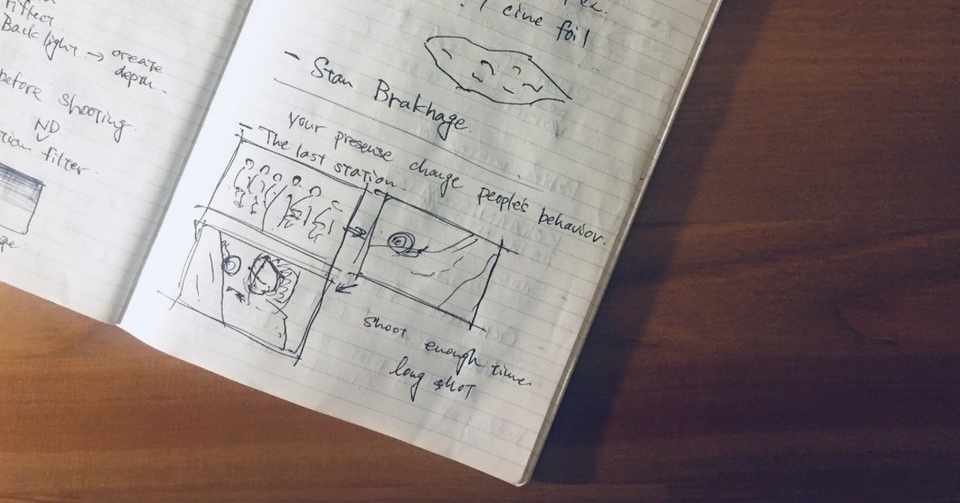 Back light → create
depth.
before shooting
ND
filter
cine foil
- Stan Brakhage.
your presense change people's behavior.
- The last station.
shoot enough time.
long shot